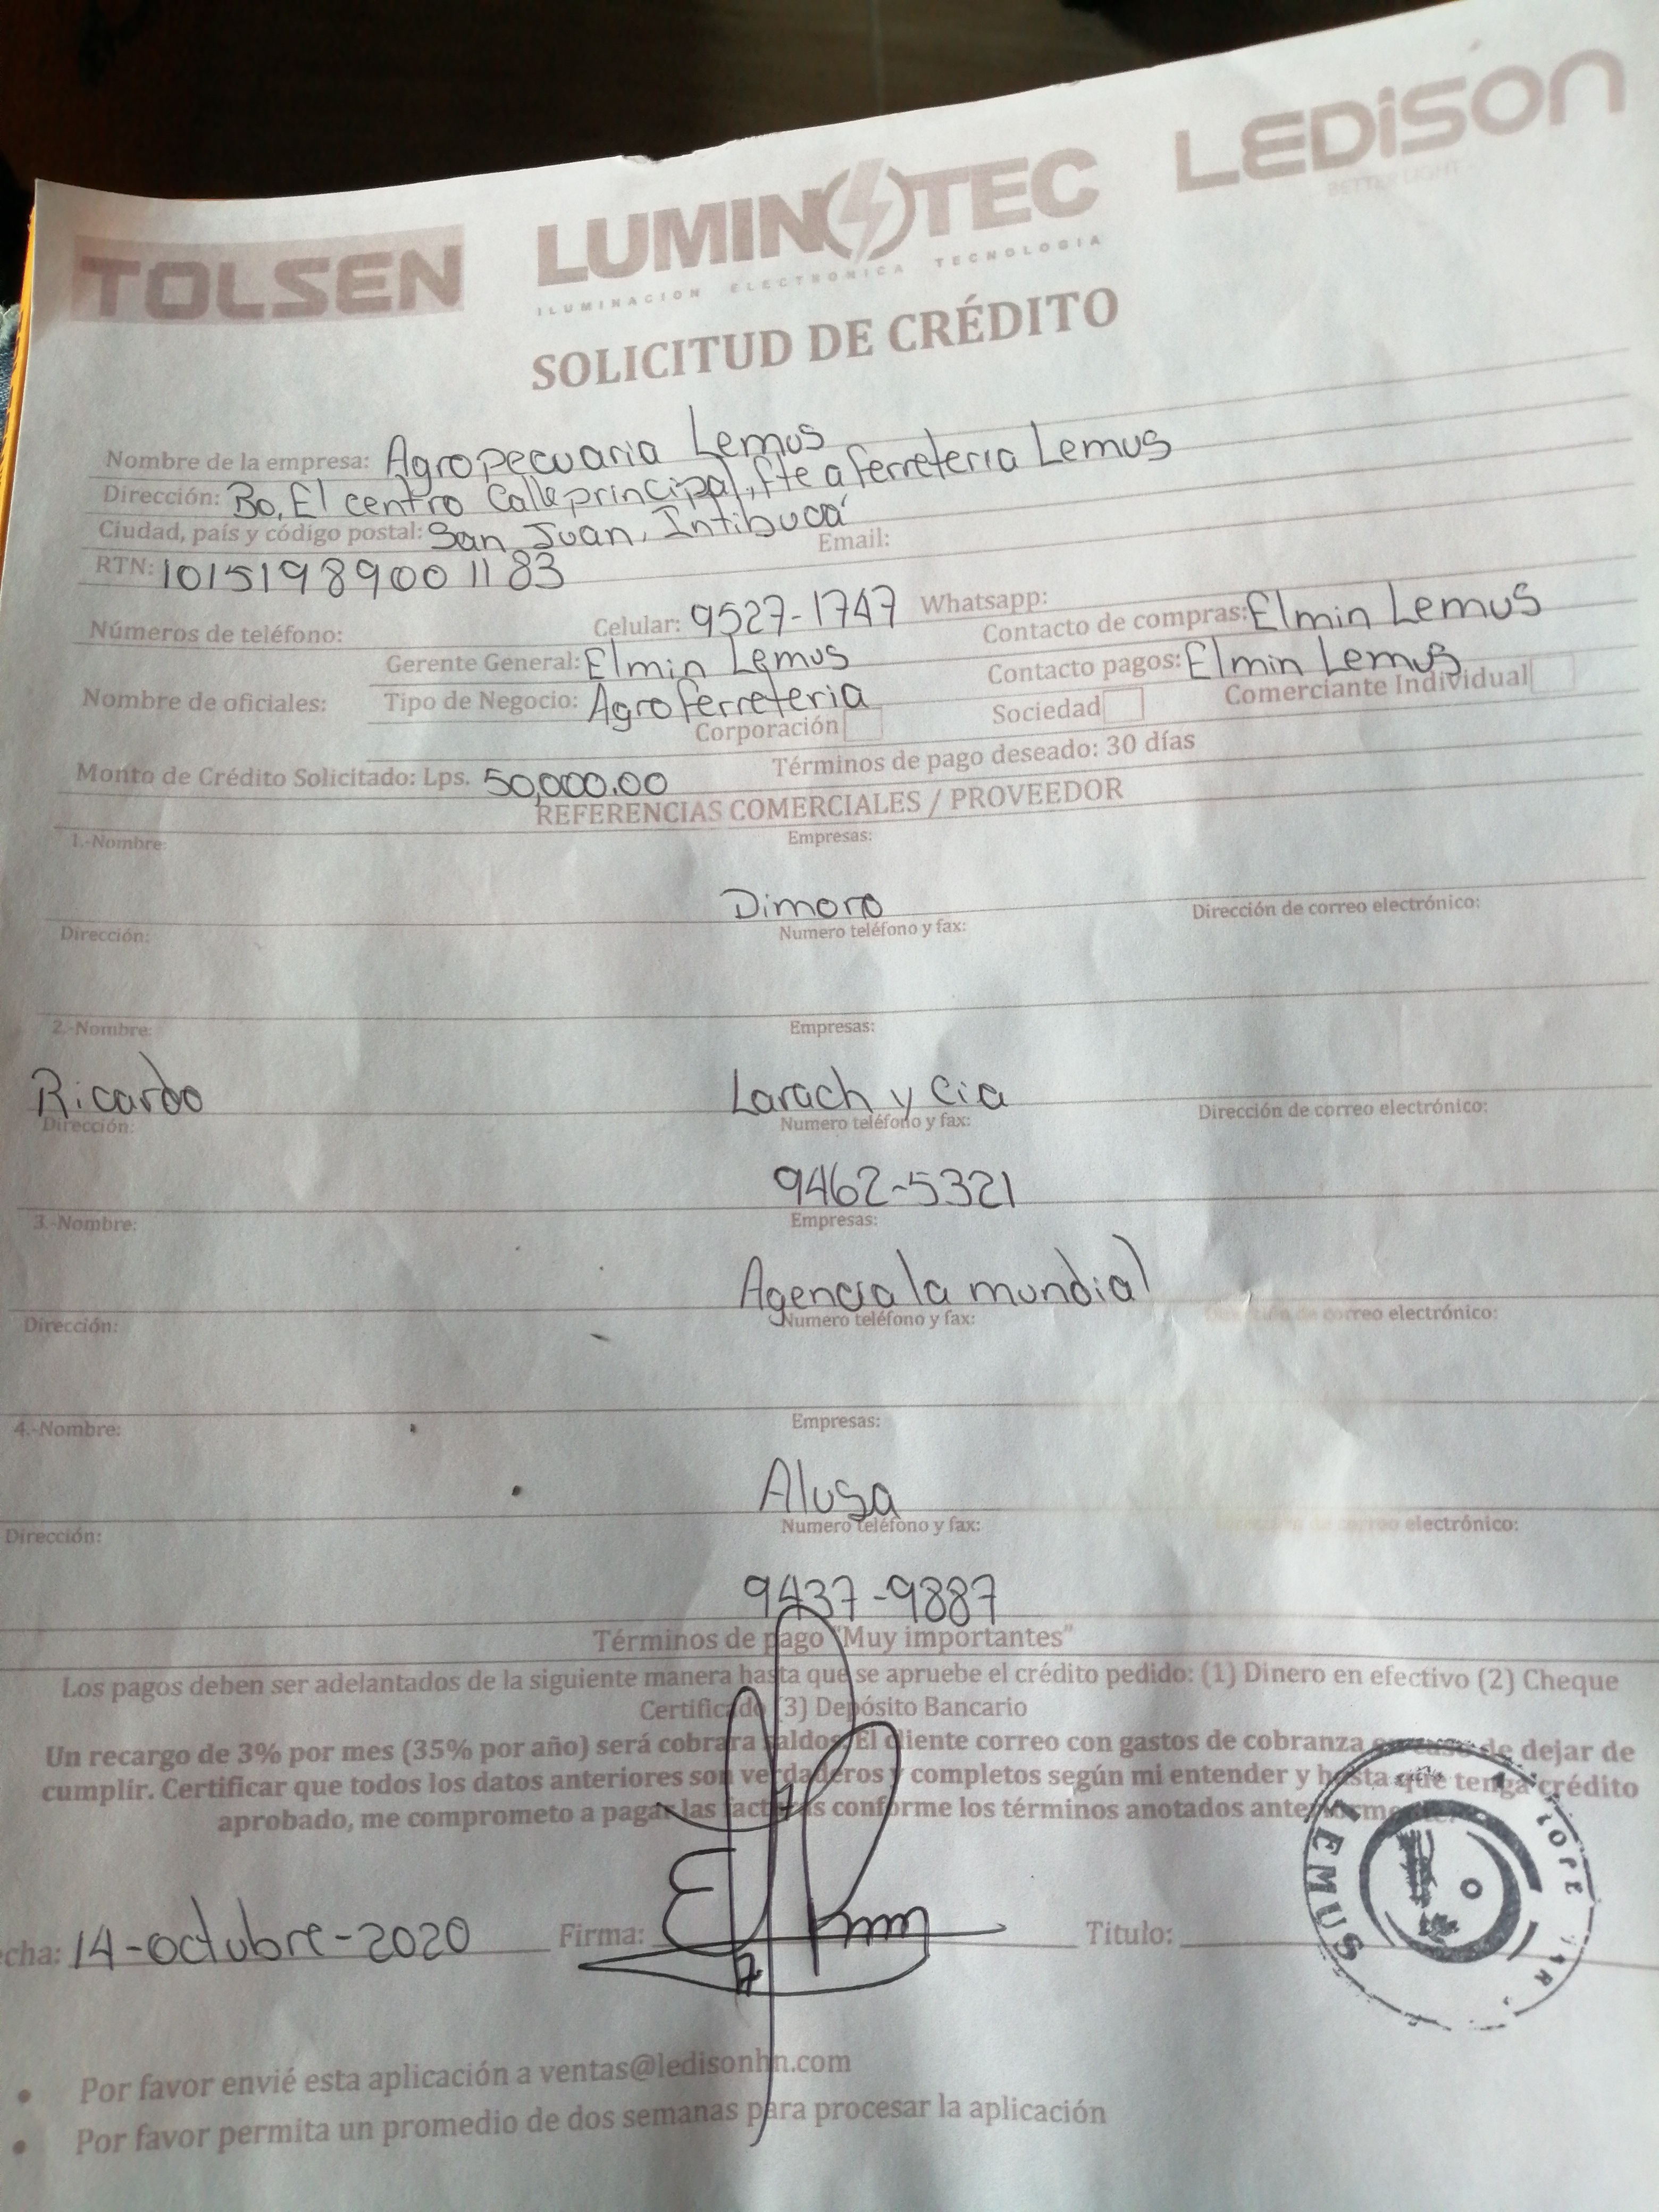 TOLSEN LUMINOTEC LEDISON
ILUMINACION ELECTRONICA TECNOLOGIA
BETTER LIGHT
SOLICITUD DE CRÉDITO
Nombre de la empresa: Agropecuaria Lemus
Dirección: Bo. El centro Calle principal, fte a ferreteria Lemus
Ciudad, país y código postal: San Juan, Intibucá Email:
RTN: 10151989001183
Números de teléfono: Celular: 9527-1747 Whatsapp:
Gerente General: Elmin Lemus Contacto de compras: Elmin Lemus
Nombre de oficiales: Tipo de Negocio: Agroferreteria Contacto pagos: Elmin Lemus
Corporación Sociedad Comerciante Individual
Monto de Crédito Solicitado: Lps. 50,000.00 Términos de pago deseado: 30 días
REFERENCIAS COMERCIALES / PROVEEDOR
1.-Nombre: Empresas:
Dimoro
Dirección: Numero teléfono y fax: Dirección de correo electrónico:
2.-Nombre: Empresas:
Ricardo Larach y Cia
Dirección: Numero teléfono y fax: Dirección de correo electrónico:
9462-5321
3.-Nombre: Empresas:
Agencia la mundial
Dirección: Numero teléfono y fax: de correo electrónico:
4.-Nombre: Empresas:
Alusa
Dirección: Numero teléfono y fax: correo electrónico:
9437-9887
Términos de pago "Muy importantes"
Los pagos deben ser adelantados de la siguiente manera hasta que se apruebe el crédito pedido: (1) Dinero en efectivo (2) Cheque
Certificado (3) Depósito Bancario
Un recargo de 3% por mes (35% por año) será cobrara saldos. El cliente correo con gastos de cobranza en caso de dejar de
cumplir. Certificar que todos los datos anteriores son verdaderos y completos según mi entender y hasta que tenga crédito
aprobado, me comprometo a pagar las facturas conforme los términos anotados anteriormente.
echa: 14-octubre-2020 Firma: Titulo:
LEMUS
Por favor envié esta aplicación a ventas@ledisonhn.com
Por favor permita un promedio de dos semanas para procesar la aplicación